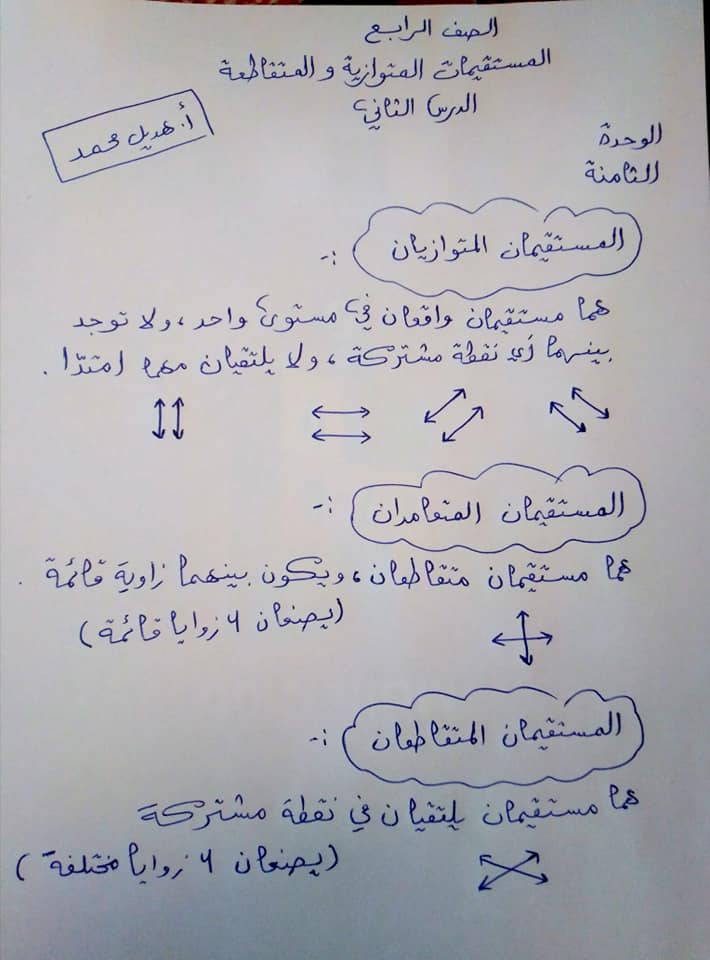 الصف الرابع
المستقيمات المتوازية و المتقاطعة
الدرس الثاني
أ. هديل محمد
الوحدة
الثامنة
المستقيمان المتوازيان :-
هما مستقيمان واقعان في مستوى واحد ، ولا توجد
بينهما أي نقطة مشتركة ، ولا يلتقيان مهما امتدّا .
المستقيمان المتعامدان :-
هما مستقيمان متقاطعان ، ويكون بينهما زاوية قائمة .
(يصنعان ٤ زوايا قائمة)
المستقيمان المتقاطعان :-
هما مستقيمان يلتقيان في نقطة مشتركة
(يصنعان ٤ زوايا مختلفة)